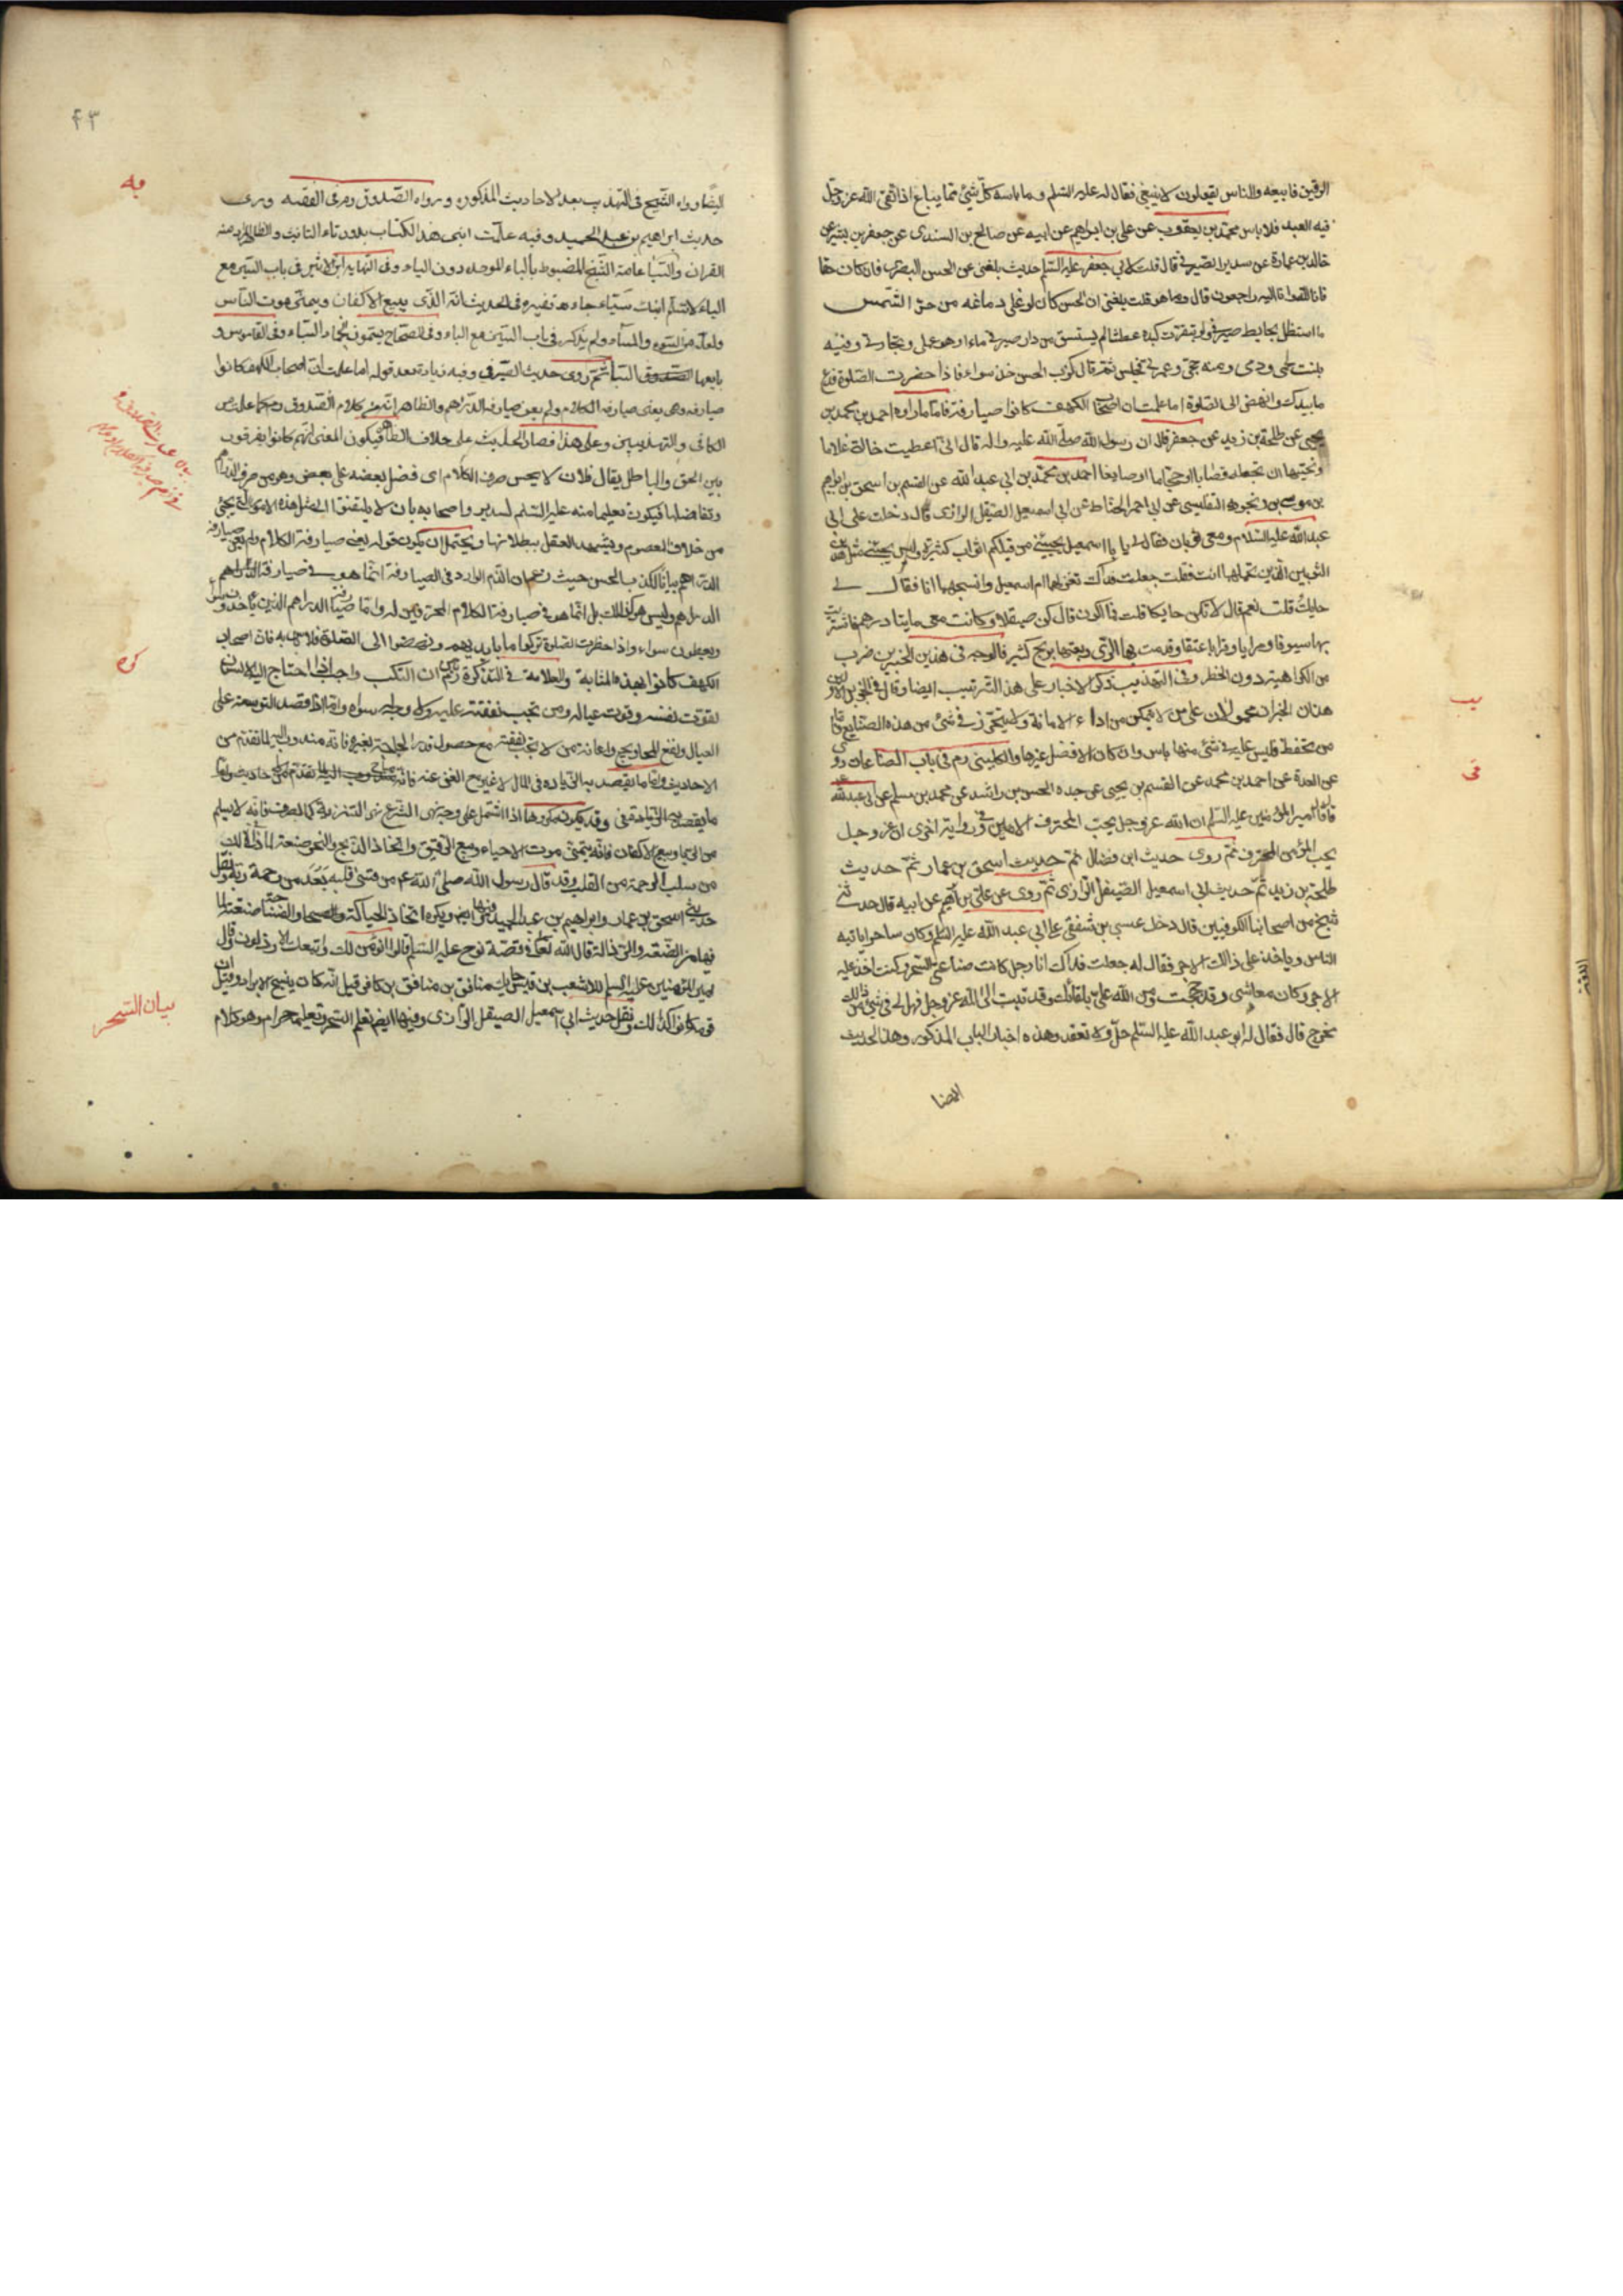 الرقيق فابيعه والناس يقولون لا ينبغي فقال له عليه السلم وما باسه كل شيئ مما يباع اذا اتقى الله عز وجل
فيه العبد فلا باس محمد بن يعقوب عن علي بن ابراهيم عن ابيه عن صالح بن السندى عن جعفر بن بشير عن
خالد بن عمارة عن سدير الصيرفي قال قلت لابي جعفر عليه السلم حديث بلغني عن الحسن البصري فان كان حقا
فانا لله وانا اليه راجعون قال وما هو قلت بلغني ان الحسن كان لو غلى دماغه من حر الشمس
ما استظل بحايط صيرفي ولو تفرثت كبده عطشا لم يستسق من دار صيرفي ماء او هو عملي وتجارتي وفيه
نبت لحمي ودمي ومنه حجتي وعمرتي فجلس ثم قال كذب الحسن خذ سواء فاذا حضرت الصلوة فدع
ما بيدك وانهض الى الصلوة اما علمت ان اصحاب الكهف كانوا صيارفة فاما ما رواه احمد بن محمد بن
يحيى عن طلحة بن زيد عن جعفر قال ان رسول الله صلى الله عليه واله قال اني اعطيت خالتي غلاما
ونهيتها ان تجعله قصابا او حجاما او صايغا احمد بن محمد بن ابي عبد الله عن القسم بن اسحق بن ابراهيم
بن موسى بن زنجويه التفليسى عن ابي عمر الحناط عن ابي اسمعيل الصيقل الرازى قال دخلت على ابي
عبد الله عليه السلام ومعي ثوبان فقال لي يا با اسمعيل يجيئني من قبلكم اثواب كثيرة وليس يجيئني مثل هذين
الثوبين الذين تحملهما انت فقلت جعلت فداك تغزلهما ام اسمعيل وانسجهما انا فقال لي
حايك قلت نعم قال لا تكن حايكا قلت فما اكون قال كن صيقلا وكانت معي مايتا درهم فاشتريت
بها سيوفا ومرايا وقرابا عتقا وقدمت بها الرى وبعتها بربح كثير فالوجه في هذين الخبرين ضرب
من الكراهية دون الحظر وفي التهذيب ذكر الاخبار على هذا الترتيب ايضا وقال في الخبرين
هذان الخبران محمولان على من لا يتمكن من اداء الامانة ولا يتحرز في شئ من هذه الصنايع فاما
من تحفظ فليس عليه في شئ منها باس وان كان الافضل غيرها والكليني رم في باب الصناعات روى
عن العدة عن احمد بن محمد عن القسم بن يحيى عن جده الحسن بن راشد عن محمد بن مسلم عن ابي عبد الله
قال قال امير المؤمنين عليه السلم ان الله عز وجل يحب المحترف الامين وفي رواية اخرى ان عز وجل
يحب المؤمن المحترف ثم روى حديث ابن فضال ثم حديث اسحق بن عمار ثم حديث
طلحة بن زيد ثم حديث ابي اسمعيل الصيقل الرازى ثم روى عن علي بن ابراهيم عن ابيه قال حدثني
شيخ من اصحابنا الكوفيين قال دخل عيسى بن شفقي على ابي عبد الله عليه السلم وكان ساحرا ياتيه
الناس وياخذ على ذلك الاجر فقال له جعلت فداك انا رجل كانت صناعتي السحر وكنت اخذ عليه
الاجر وكان معاشى وقد حججت ومن الله علي بلقائك وقد تبت الى الله عز وجل فهل لي في شئ من ذلك
مخرج قال فقال له ابو عبد الله عليه السلم حل ولا تعقد وهذه اخبار الباب المذكور وهذا الحديث
ايضا
يب
في
٤٣
ايضا رواه الشيخ في التهذيب بعد الاحاديث المذكورة ورواه الصدوق رم في الفقيه وروى
حديث ابراهيم بن عبد الحميد وفيه علمت ابني هذا الكتاب بدون تاء التانيث والظاهر منه
القران والسباء عامة النسخ المضبوط بالباء الموحدة دون الياء وفي النهاية ابن الاثير في باب السين مع
الياء لا تسلم ابنك سياء جاء تفسيره في الحديث انه الذى يبيع الاكفان ويتمنى موت الناس
ولعله من السوء والمساة ولم يذكره في باب السين مع الباء وفي الصحاح
بايعها ثم روى حديث الصيرفي وفيه زيادة بعد قوله اما علمت ان اصحاب الكهف كانوا
صيارفة وهى يعنى صيارفة الكلام ولم يعن صيارفة الدراهم والظاهر انه من كلام الصدوق رم كما علمت من
الكافي والتهذيبين وعلى هذا فصار الحديث على خلاف الظاهر فيكون المعنى انهم كانوا يفرقون
بين الحق والباطل يقال فلان لا يحسن صرف الكلام اى فضل بعضه على بعض وهو من صرف الدراهم
وتفاضلها فيكون تعليما منه عليه السلم لسدير واصحابه بان لا يلتفتوا الى مثل هذه الامور التى يجئ
من خلاف المعصوم ويشهد العقل ببطلانها ويحتمل ان يكون قوله يعنى صيارفة الكلام ولم يعن صيارفة
الدراهم بيانا لكذب الحسن حيث زعم ان الذم الوارد في الصيارفة انما هو في صيارفة الدراهم
وليس هو كذلك بل انما هو في صيارفة الكلام المحرفين له واما صيارفة الدراهم الذين ياخذون سواء
ويعطون سواء واذا حضرت الصلوة تركوا ما بايديهم ونهضوا الى الصلوة فلا باس به فان اصحاب
الكهف كانوا بهذه المثابة والعلامة في التذكرة ذكر ان التكسب واجب اذا احتاج اليه الانسان
لقوت نفسه وقوت عياله ومن تجب نفقته عليه ولا وجه له سواه واما اذا قصد التوسعة على
العيال ونفع المحاويج واعانة من لا تجب نفقته مع حصول قدر الحاجة بغيره فانه مندوب اليه لما تقدم من
الاحاديث واما ما يقصد به الزيادة في المال لا غير مع الغنى عنه فانه مباح
وقد يكون مكروها اذا اشتمل على وجه نهى الشرع نهى التنزيه كالصرف فانه لا يسلم
من الربا وبيع الاكفان فانه يتمنى موت الاحياء وبيع الرقيق واتخاذ الذبح والنحر صنعة لما في ذلك
من سلب الرحمة من القلب وقد قال رسول الله صلى الله عليه من قسى قلبه بعد من رحمة ربه ونقل
حديثي اسحق بن عمار وابراهيم بن عبد الحميد وفيها ايض ويكره اتخاذ الحياكة والنساجة صنعة لما
فيها من الضعة والرذالة قال الله تعالى في قصة نوح عليه السلم قالوا انؤمن لك واتبعك الارذلون وقال
امير المؤمنين عليه السلم للاشعث بن قيس حايك منافق بن منافق بن كافر قيل انه كان ينسج الابراد وقيل ان
قومه كانوا كذلك ونقل حديث ابي اسمعيل الصيقل الرازى وفيها ايض تعلم السحر وتعليمه حرام وهو كلام
يه
كره
بيان السحر